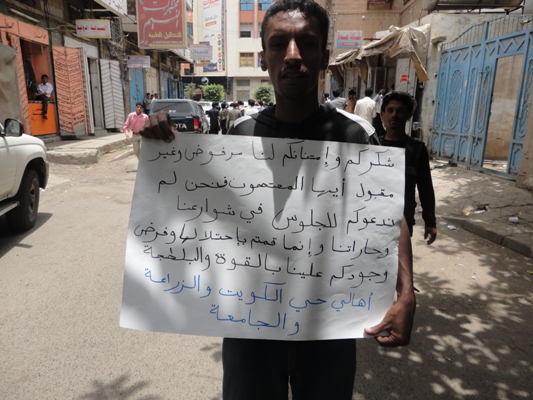 شكركم وإمتنانكم لنا مرفوض وغير
مقبول أيها المعتصمون فنحن لم
ندعوكم للجلوس في شوارعنا
وحاراتنا وإنما قمتم بإحتلالها وفرض
وجودكم علينا بالقوة والبلطجة
أهالي حي الكويت والزراعة
والجامعة